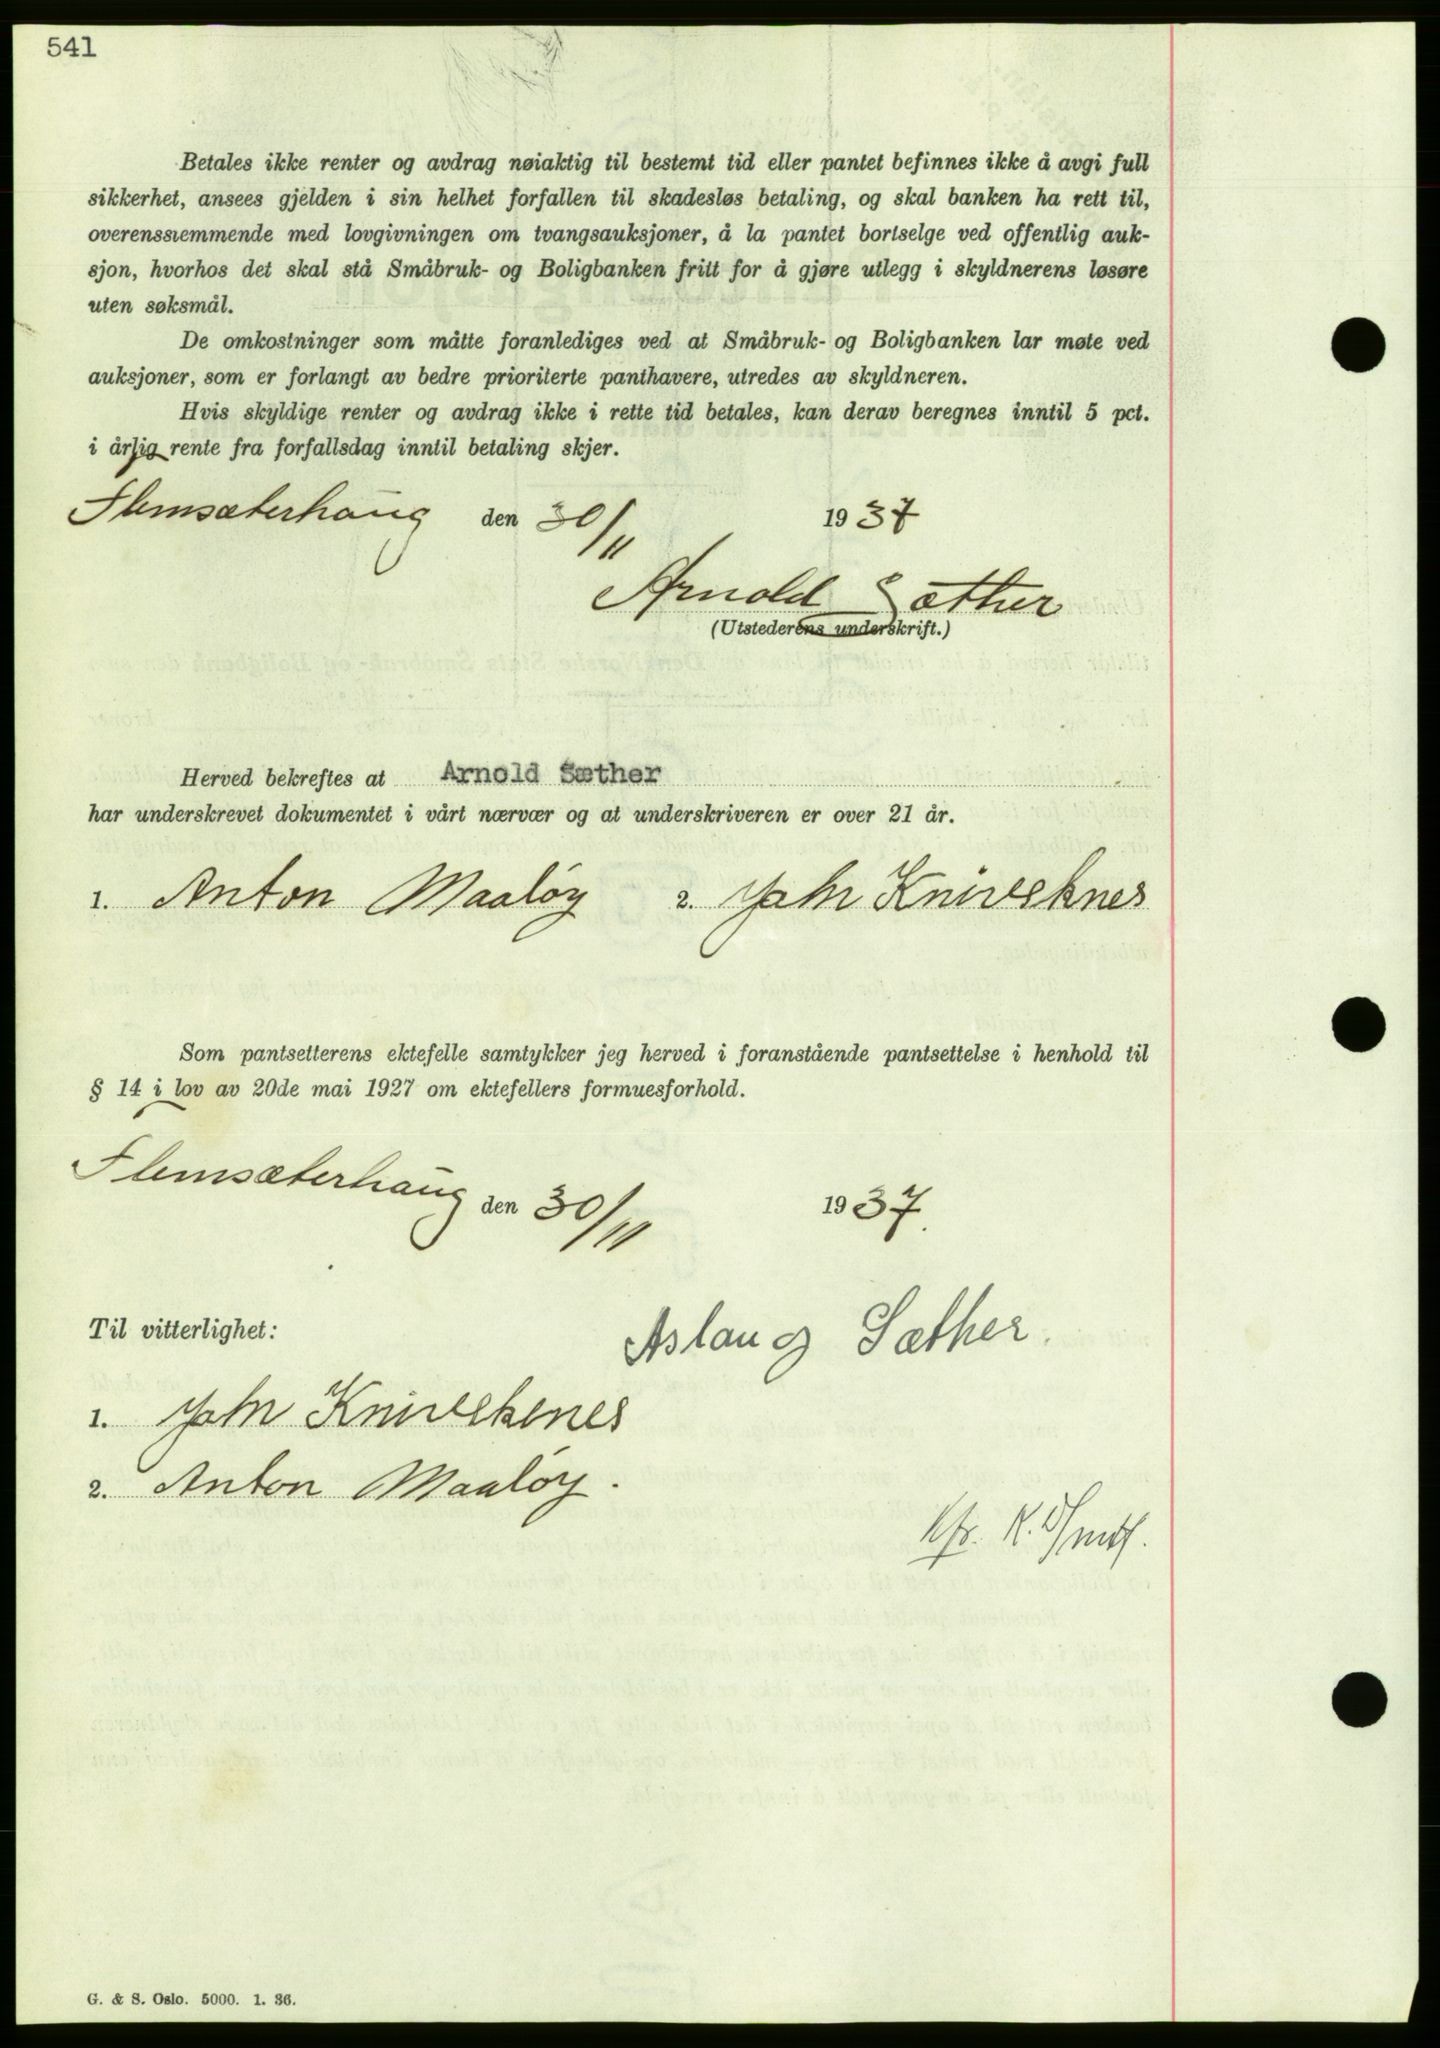 541
Betales ikke renter og avdrag nøiaktig til bestemt tid eller pantet befinnes ikke å avgi full
sikkerhet, ansees gjelden i sin helhet forfallen til skadesløs betaling, og skal banken ha rett til,
overensstemmende med lovgivningen om tvangsauksjoner, å la pantet bortselge ved offentlig auk-
sjon, hvorhos det skal stå Småbruk- og Boligbanken fritt for å gjøre utlegg i skyldnerens løsøre
uten søksmål.
De omkostninger som måtte foranlediges ved at Småbruk- og Boligbanken lar møte ved
auksjoner, som er forlangt av bedre prioriterte panthavere, utredes av skyldneren.
Hvis skyldige renter og avdrag ikke i rette tid betales, kan derav beregnes inntil 5 pct.
i årlig rente fra forfallsdag inntil betaling skjer.
Flemsæterhaug den 30/11 1937
Arnold Sæther
(Utstederens underskrift.)
Herved bekreftes at Arnold Sæther
har underskrevet dokumentet i vårt nærvær og at underskriveren er over 21 år.
1. Anton Maaløy 2. John Kniveknes
Som pantsetterens ektefelle samtykker jeg herved i foranstående pantsettelse i henhold til
§ 14 i lov av 20de mai 1927 om ektefellers formuesforhold.
Flemsæterhaug den 30/11 1937.
Til vitterlighet:
Aslaug Sæther.
1. John
2. Anton Maaløy.
K.
G. & S. Oslo. 5000. 1. 36.